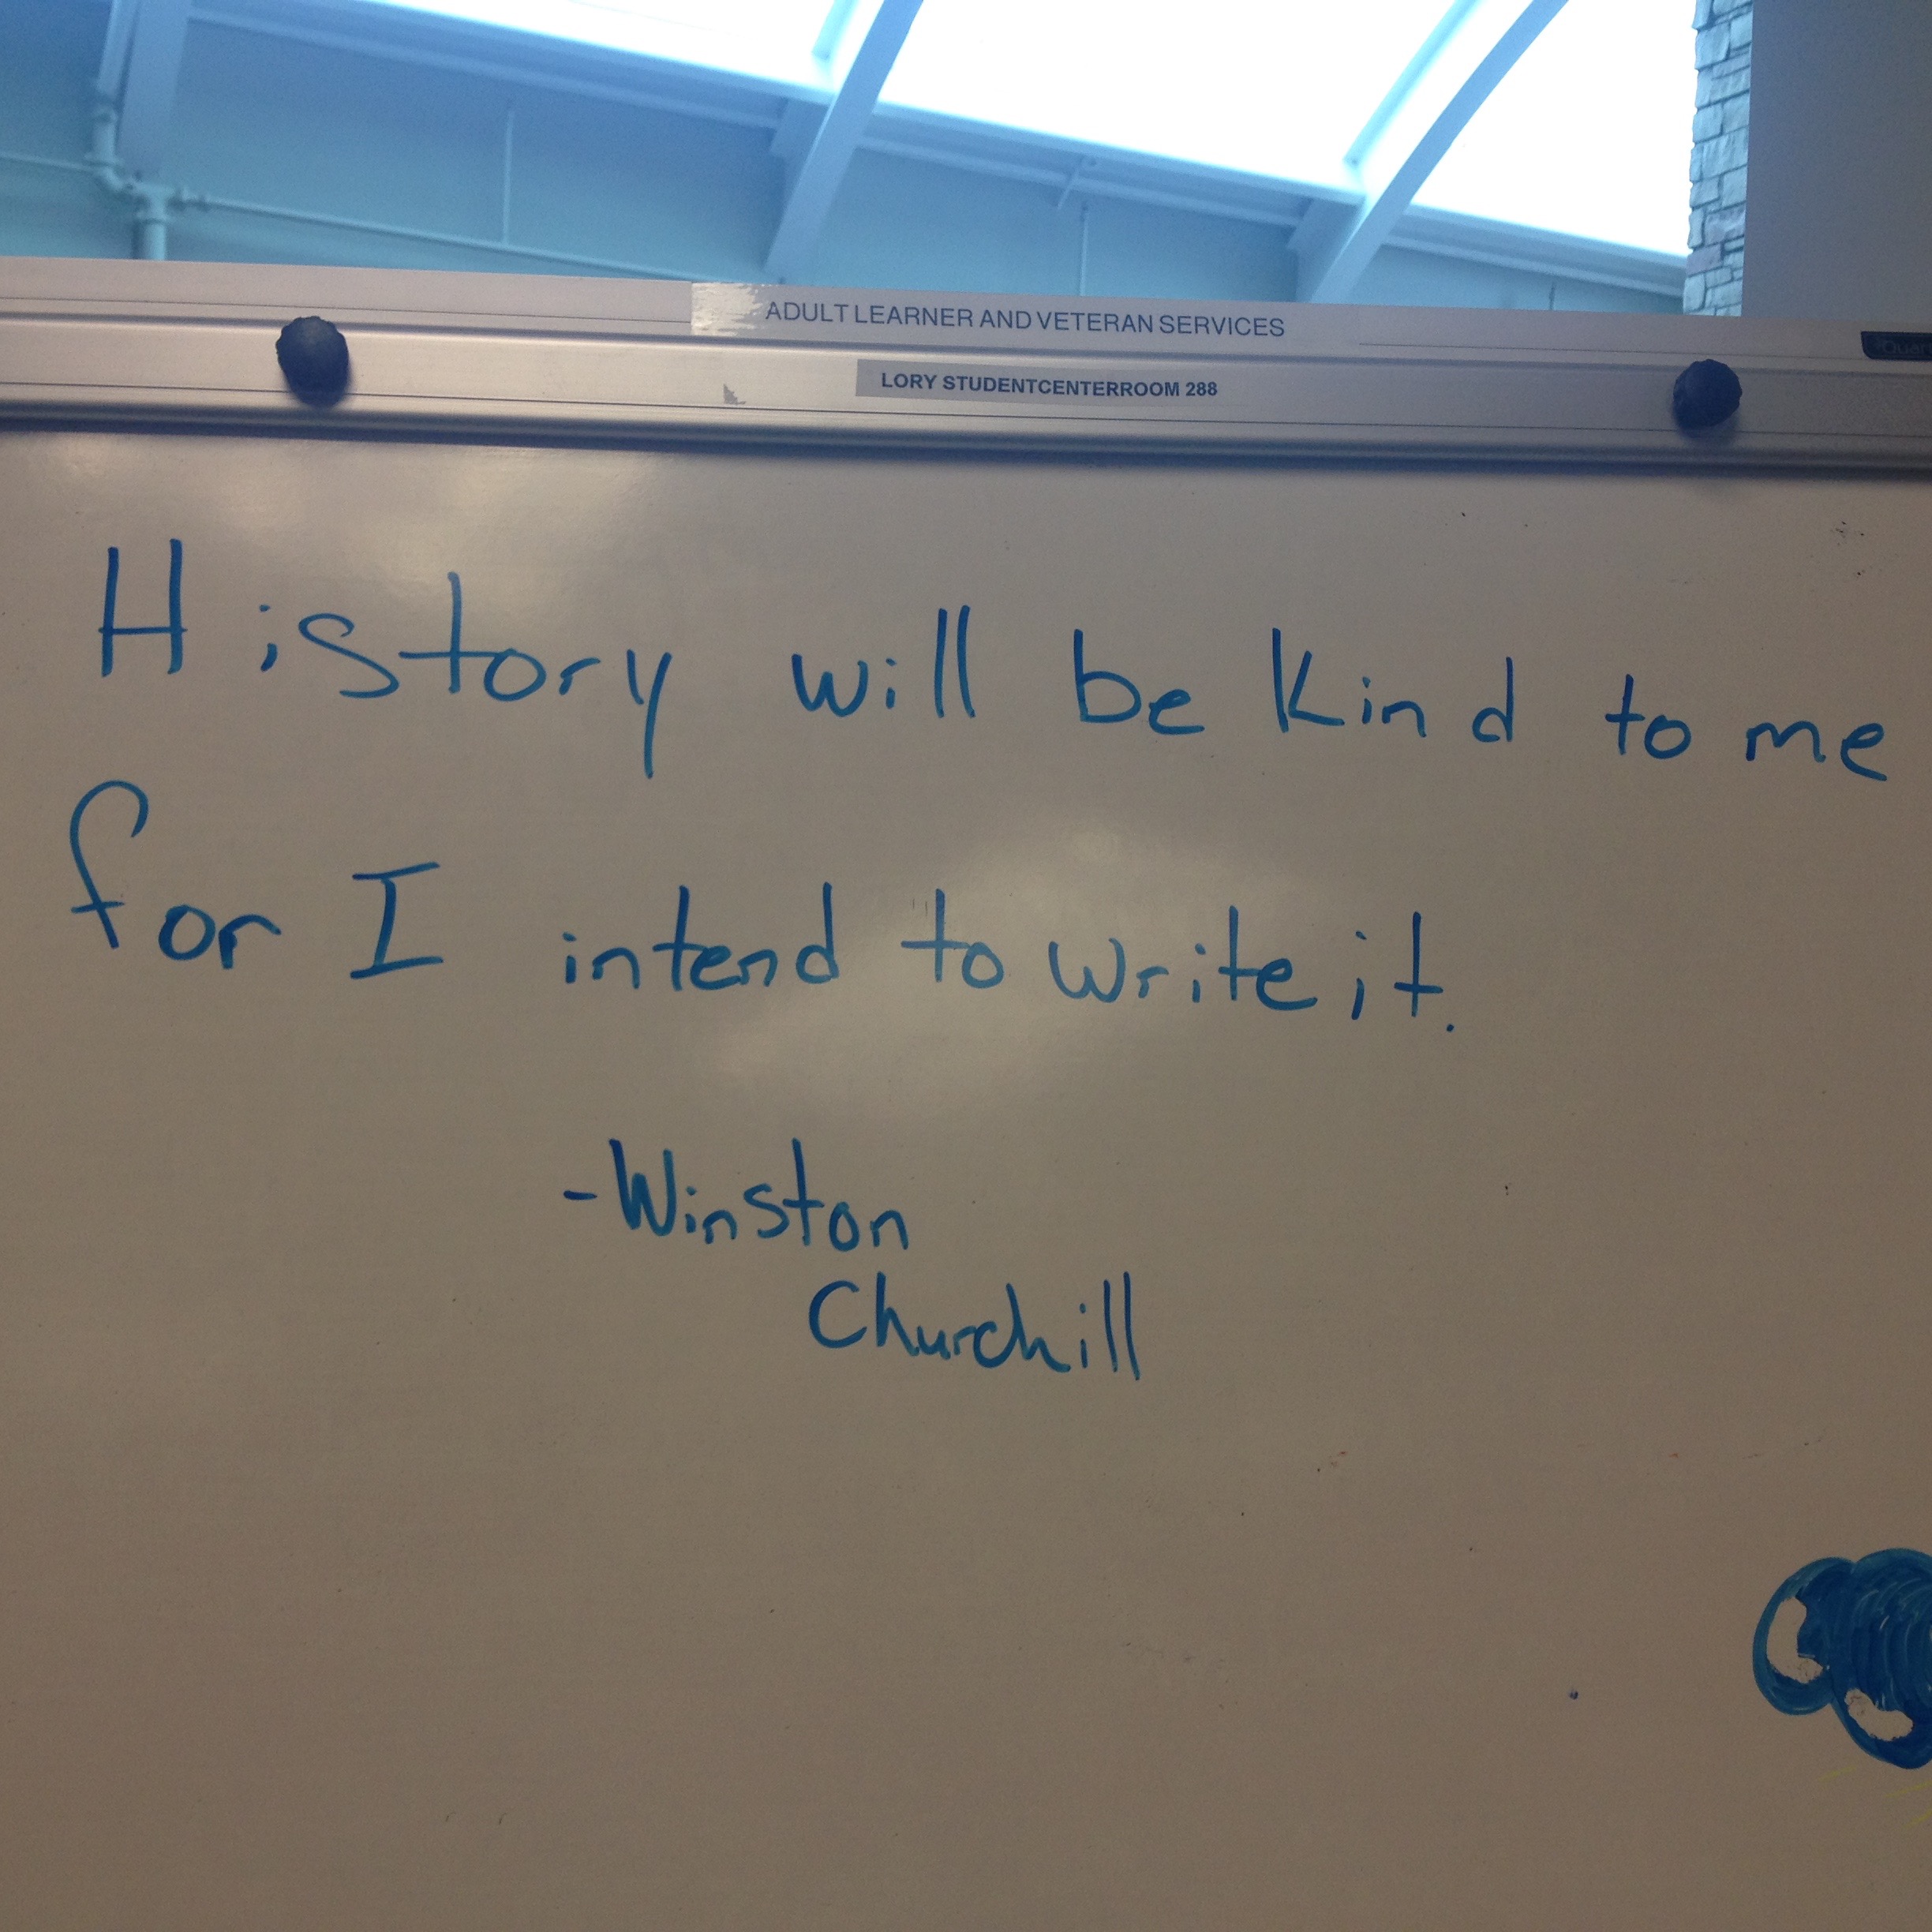 ADULT LEARNER AND VETERAN SERVICES
LORY STUDENTCENTERROOM 288
History will be kind to me
for I intend to write it.
-Winston
Churchill